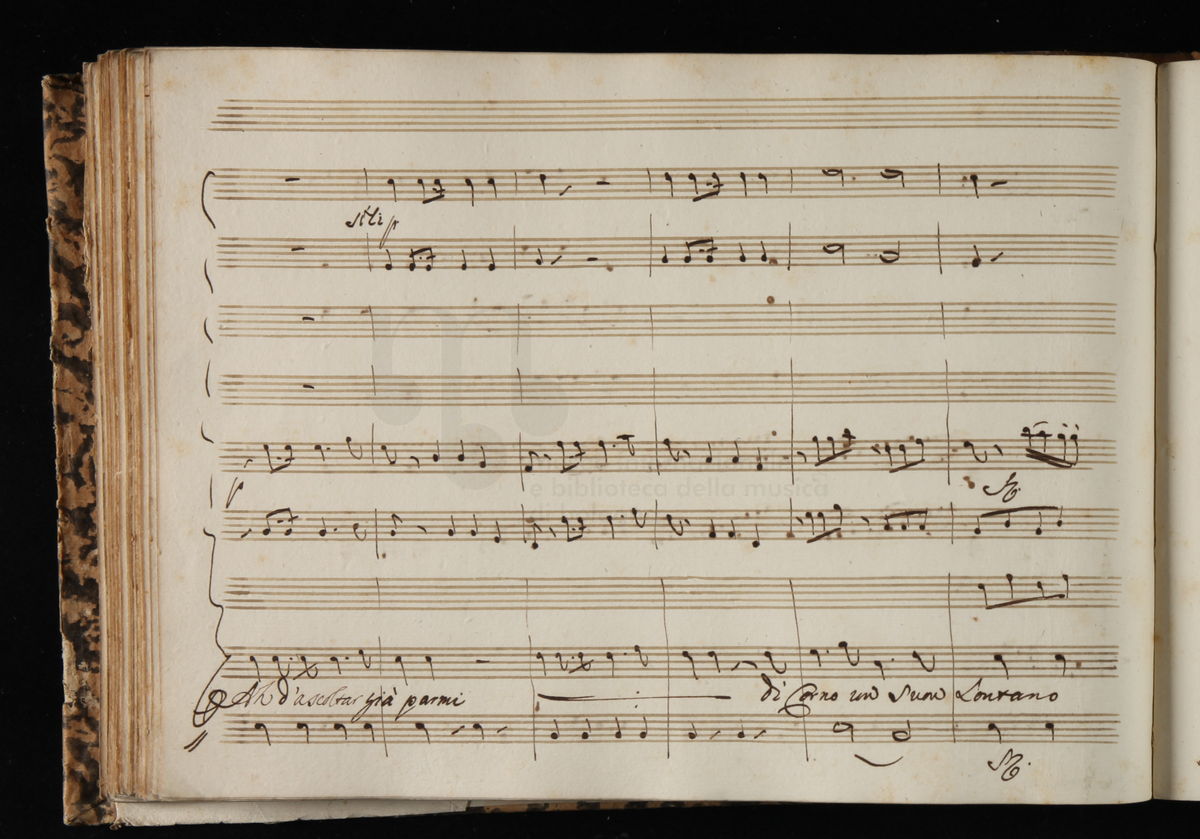 e biblioteca della musica
Ah d'ascoltar già parmi di Corno un Suon Lontano